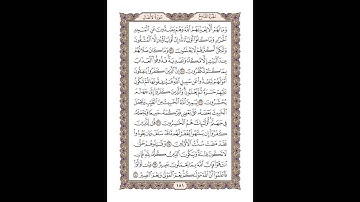 الجزء التاسع سورة الأنفال
وَمَا لَهُمْ أَلَّا يُعَذِّبَهُمُ ٱللَّهُ وَهُمْ يَصُدُّونَ عَنِ ٱلْمَسْجِدِ
ٱلْحَرَامِ وَمَا كَانُوٓا۟ أَوْلِيَآءَهُۥٓ إِنْ أَوْلِيَآؤُهُۥٓ إِلَّا ٱلْمُتَّقُونَ
وَلَٰكِنَّ أَكْثَرَهُمْ لَا يَعْلَمُونَ ٣٤ وَمَا كَانَ صَلَاتُهُمْ
عِندَ ٱلْبَيْتِ إِلَّا مُكَآءً وَتَصْدِيَةً فَذُوقُوا۟ ٱلْعَذَابَ
بِمَا كُنتُمْ تَكْفُرُونَ ٣٥ إِنَّ ٱلَّذِينَ كَفَرُوا۟ يُنفِقُونَ
أَمْوَٰلَهُمْ لِيَصُدُّوا۟ عَن سَبِيلِ ٱللَّهِ فَسَيُنفِقُونَهَا ثُمَّ
تَكُونُ عَلَيْهِمْ حَسْرَةً ثُمَّ يُغْلَبُونَ وَٱلَّذِينَ كَفَرُوٓا۟ إِلَىٰ جَهَنَّمَ
يُحْشَرُونَ ٣٦ لِيَمِيزَ ٱللَّهُ ٱلْخَبِيثَ مِنَ ٱلطَّيِّبِ وَيَجْعَلَ
ٱلْخَبِيثَ بَعْضَهُۥ عَلَىٰ بَعْضٍ فَيَرْكُمَهُۥ جَمِيعًا فَيَجْعَلَهُۥ
فِى جَهَنَّمَ أُو۟لَٰٓئِكَ هُمُ ٱلْخَٰسِرُونَ ٣٧ قُل لِّلَّذِينَ
كَفَرُوٓا۟ إِن يَنتَهُوا۟ يُغْفَرْ لَهُم مَّا قَدْ سَلَفَ وَإِن يَعُودُوا۟
فَقَدْ مَضَتْ سُنَّتُ ٱلْأَوَّلِينَ ٣٨ وَقَٰتِلُوهُمْ حَتَّىٰ
لَا تَكُونَ فِتْنَةٌ وَيَكُونَ ٱلدِّينُ كُلُّهُۥ لِلَّهِ فَإِنِ
ٱنتَهَوْا۟ فَإِنَّ ٱللَّهَ بِمَا يَعْمَلُونَ بَصِيرٌ ٣٩ وَإِن تَوَلَّوْا۟
فَٱعْلَمُوٓا۟ أَنَّ ٱللَّهَ مَوْلَىٰكُمْ نِعْمَ ٱلْمَوْلَىٰ وَنِعْمَ ٱلنَّصِيرُ ٤٠
١٨١